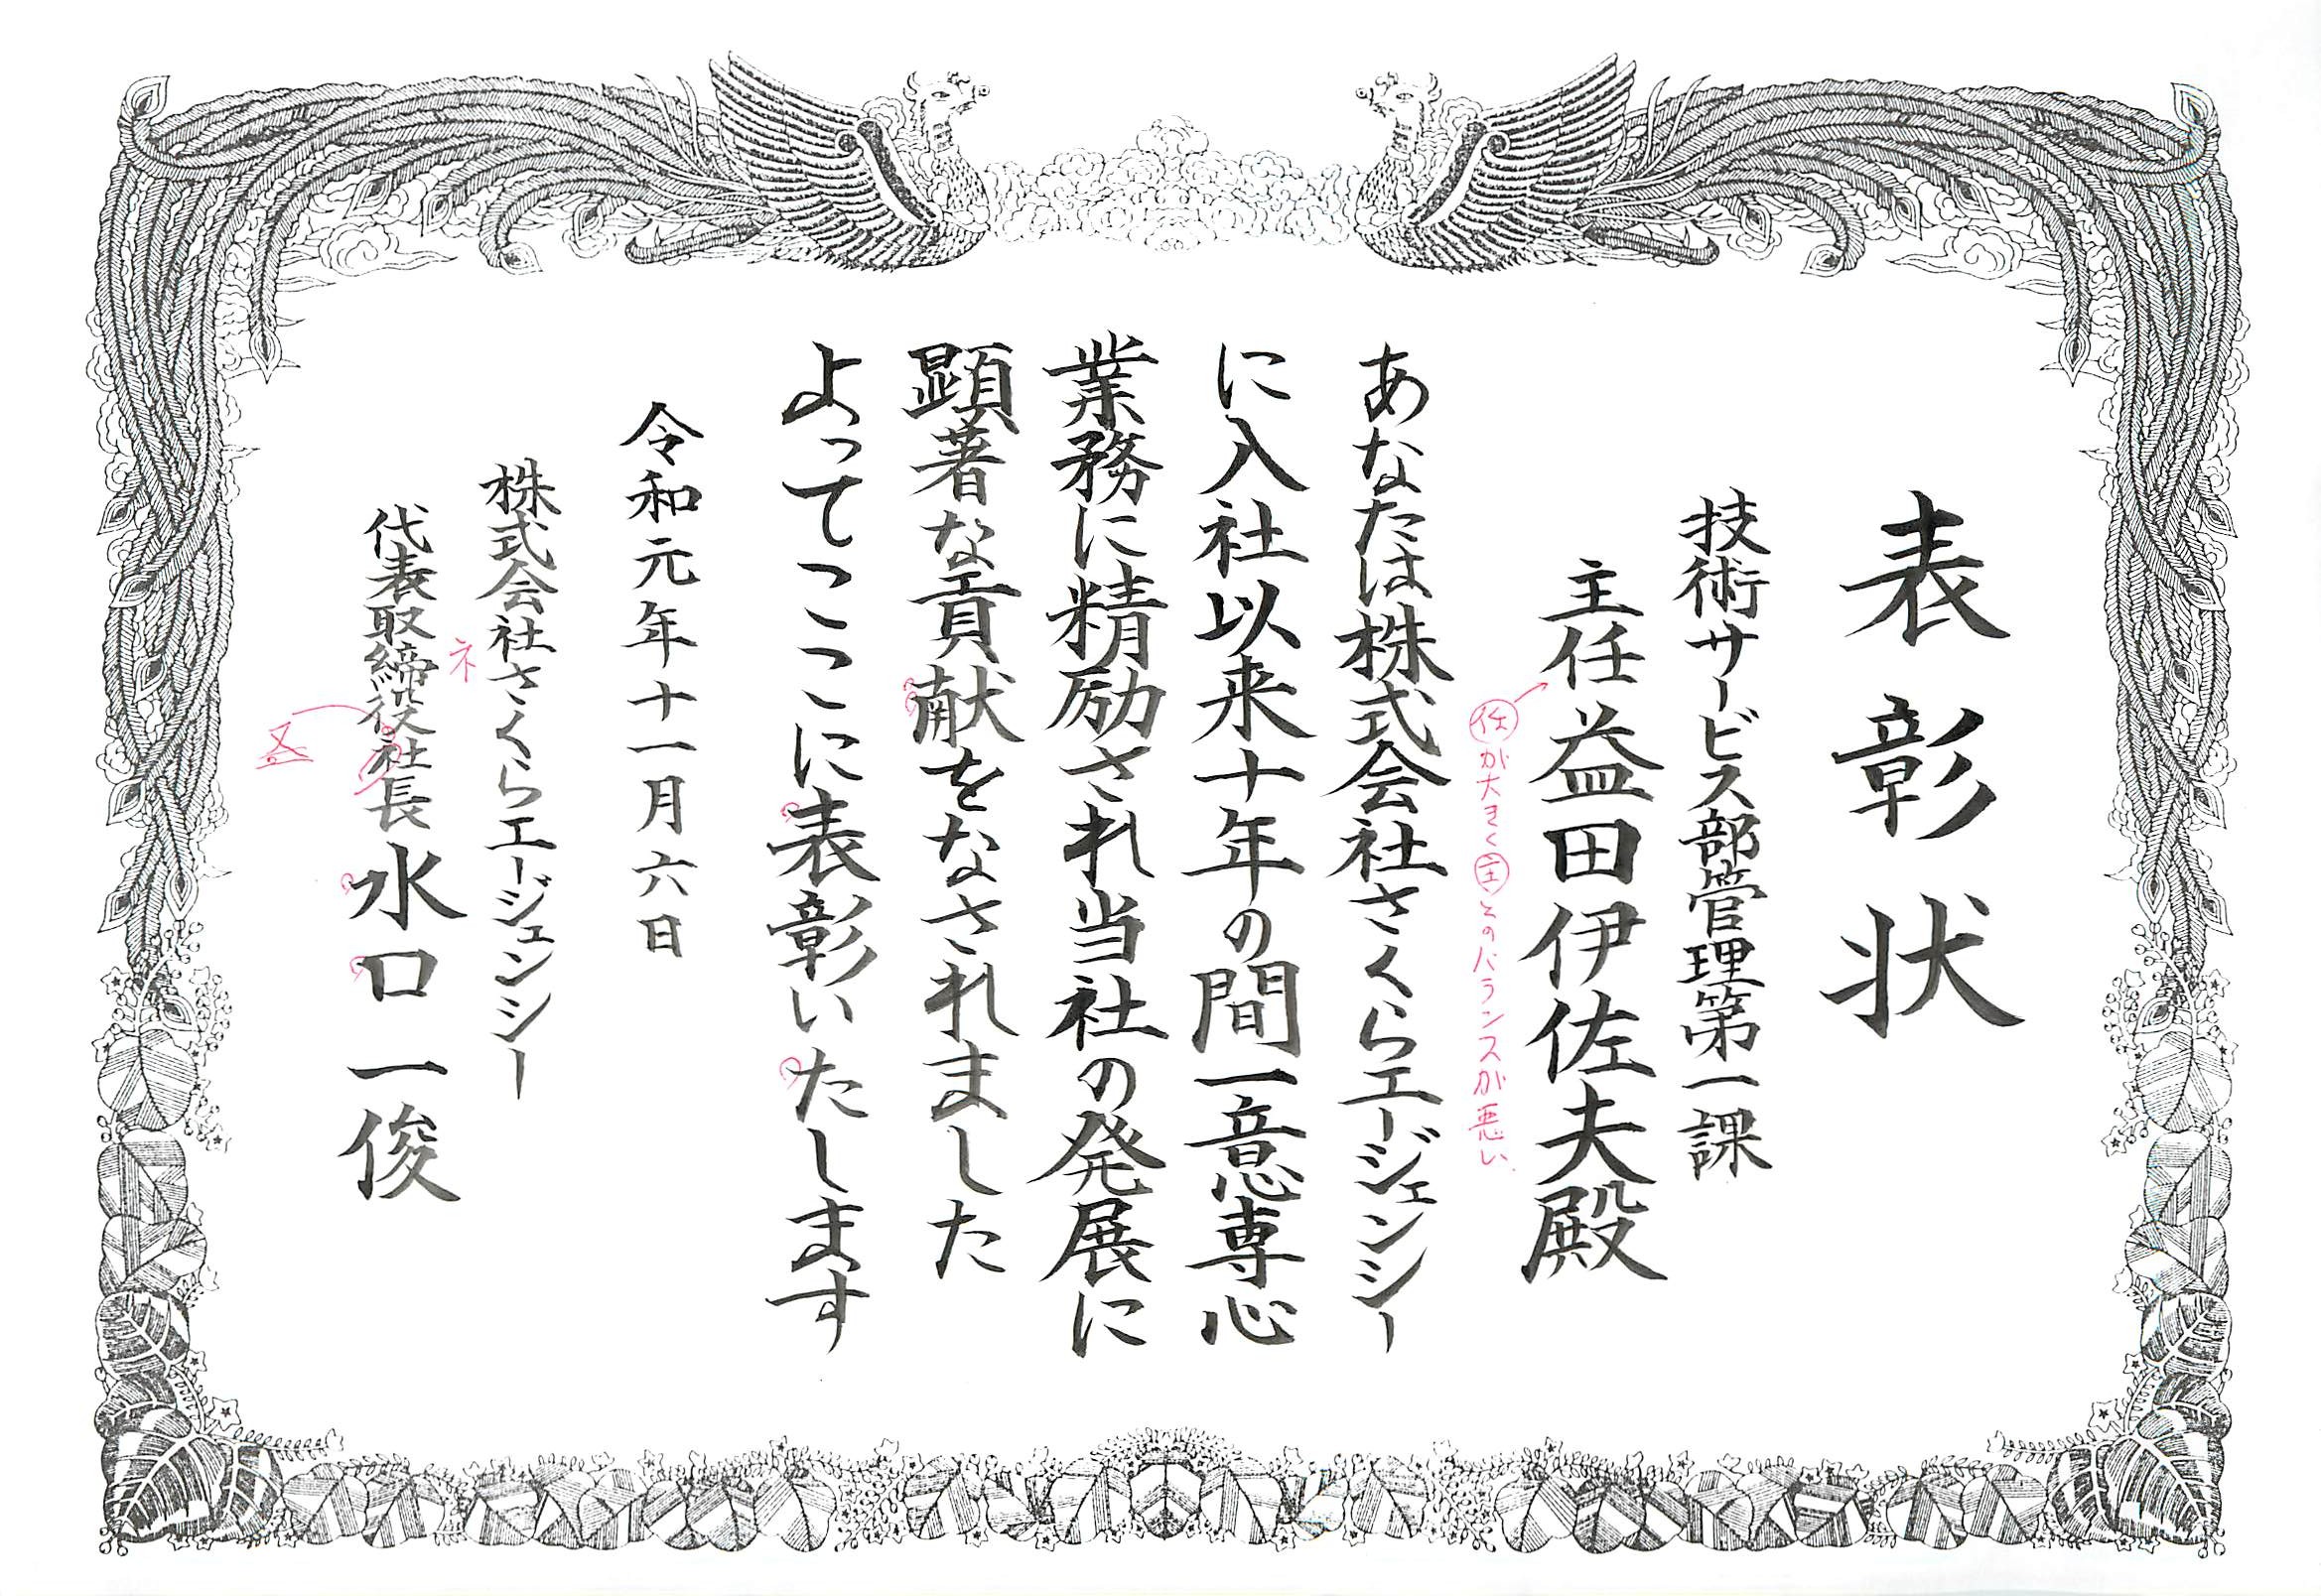 表彰状
技術サービス部管理第一課
主任 益田伊佐夫殿
任が大きく主とのバランスが悪い
あなたは株式会社さくらエージェンシー
に入社以来十年の間一意専心
業務に精励され当社の発展に
顕著な貢献をなされました
よってここに表彰いたします
令和元年十一月六日
株式会社さくらエージェンシー
ネ
代表取締役社長 水口一俊